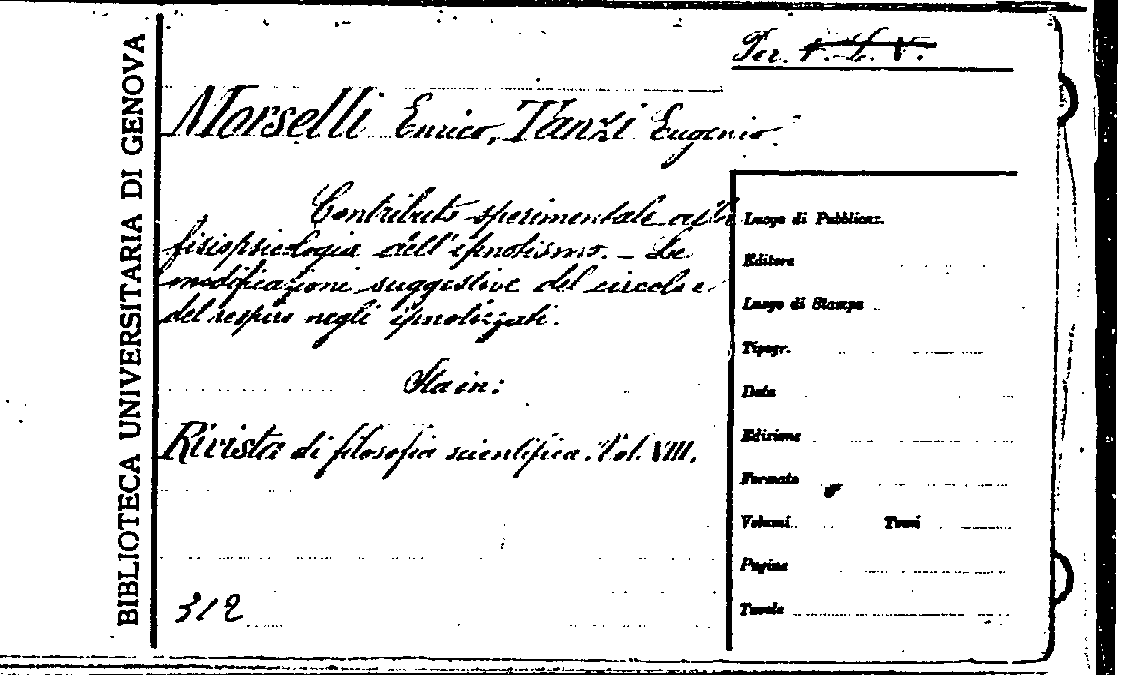 BIBLIOTECA UNIVERSITARIA DI GENOVA
Per.
Morselli Enrico, Tanzi Eugenio.
Contributo sperimentale alla
fisiopsicologia dell'ipnotismo. - Le
modificazioni suggestive del circolo e
del respiro negli ipnotizzati.
Sta in:
Rivista di filosofia scientifica. Vol. VIII.
312
Luogo di Pubblicaz.
Editore
Luogo di Stampa
Tipogr.
Data
Edizione
Formato
Volumi Tomi
Pagine
Tavole